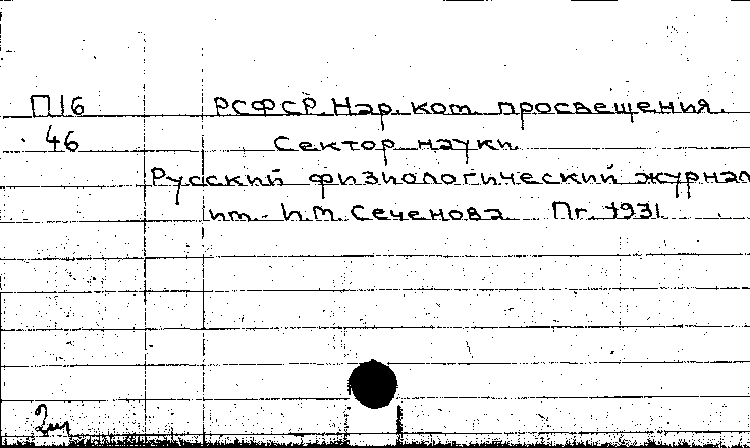 П16 РСФСР. Нар. ком. просвещения.
46 Сектор науки.
Русский физиологический журнал
им. И.М. Сеченова. Пг. 1931